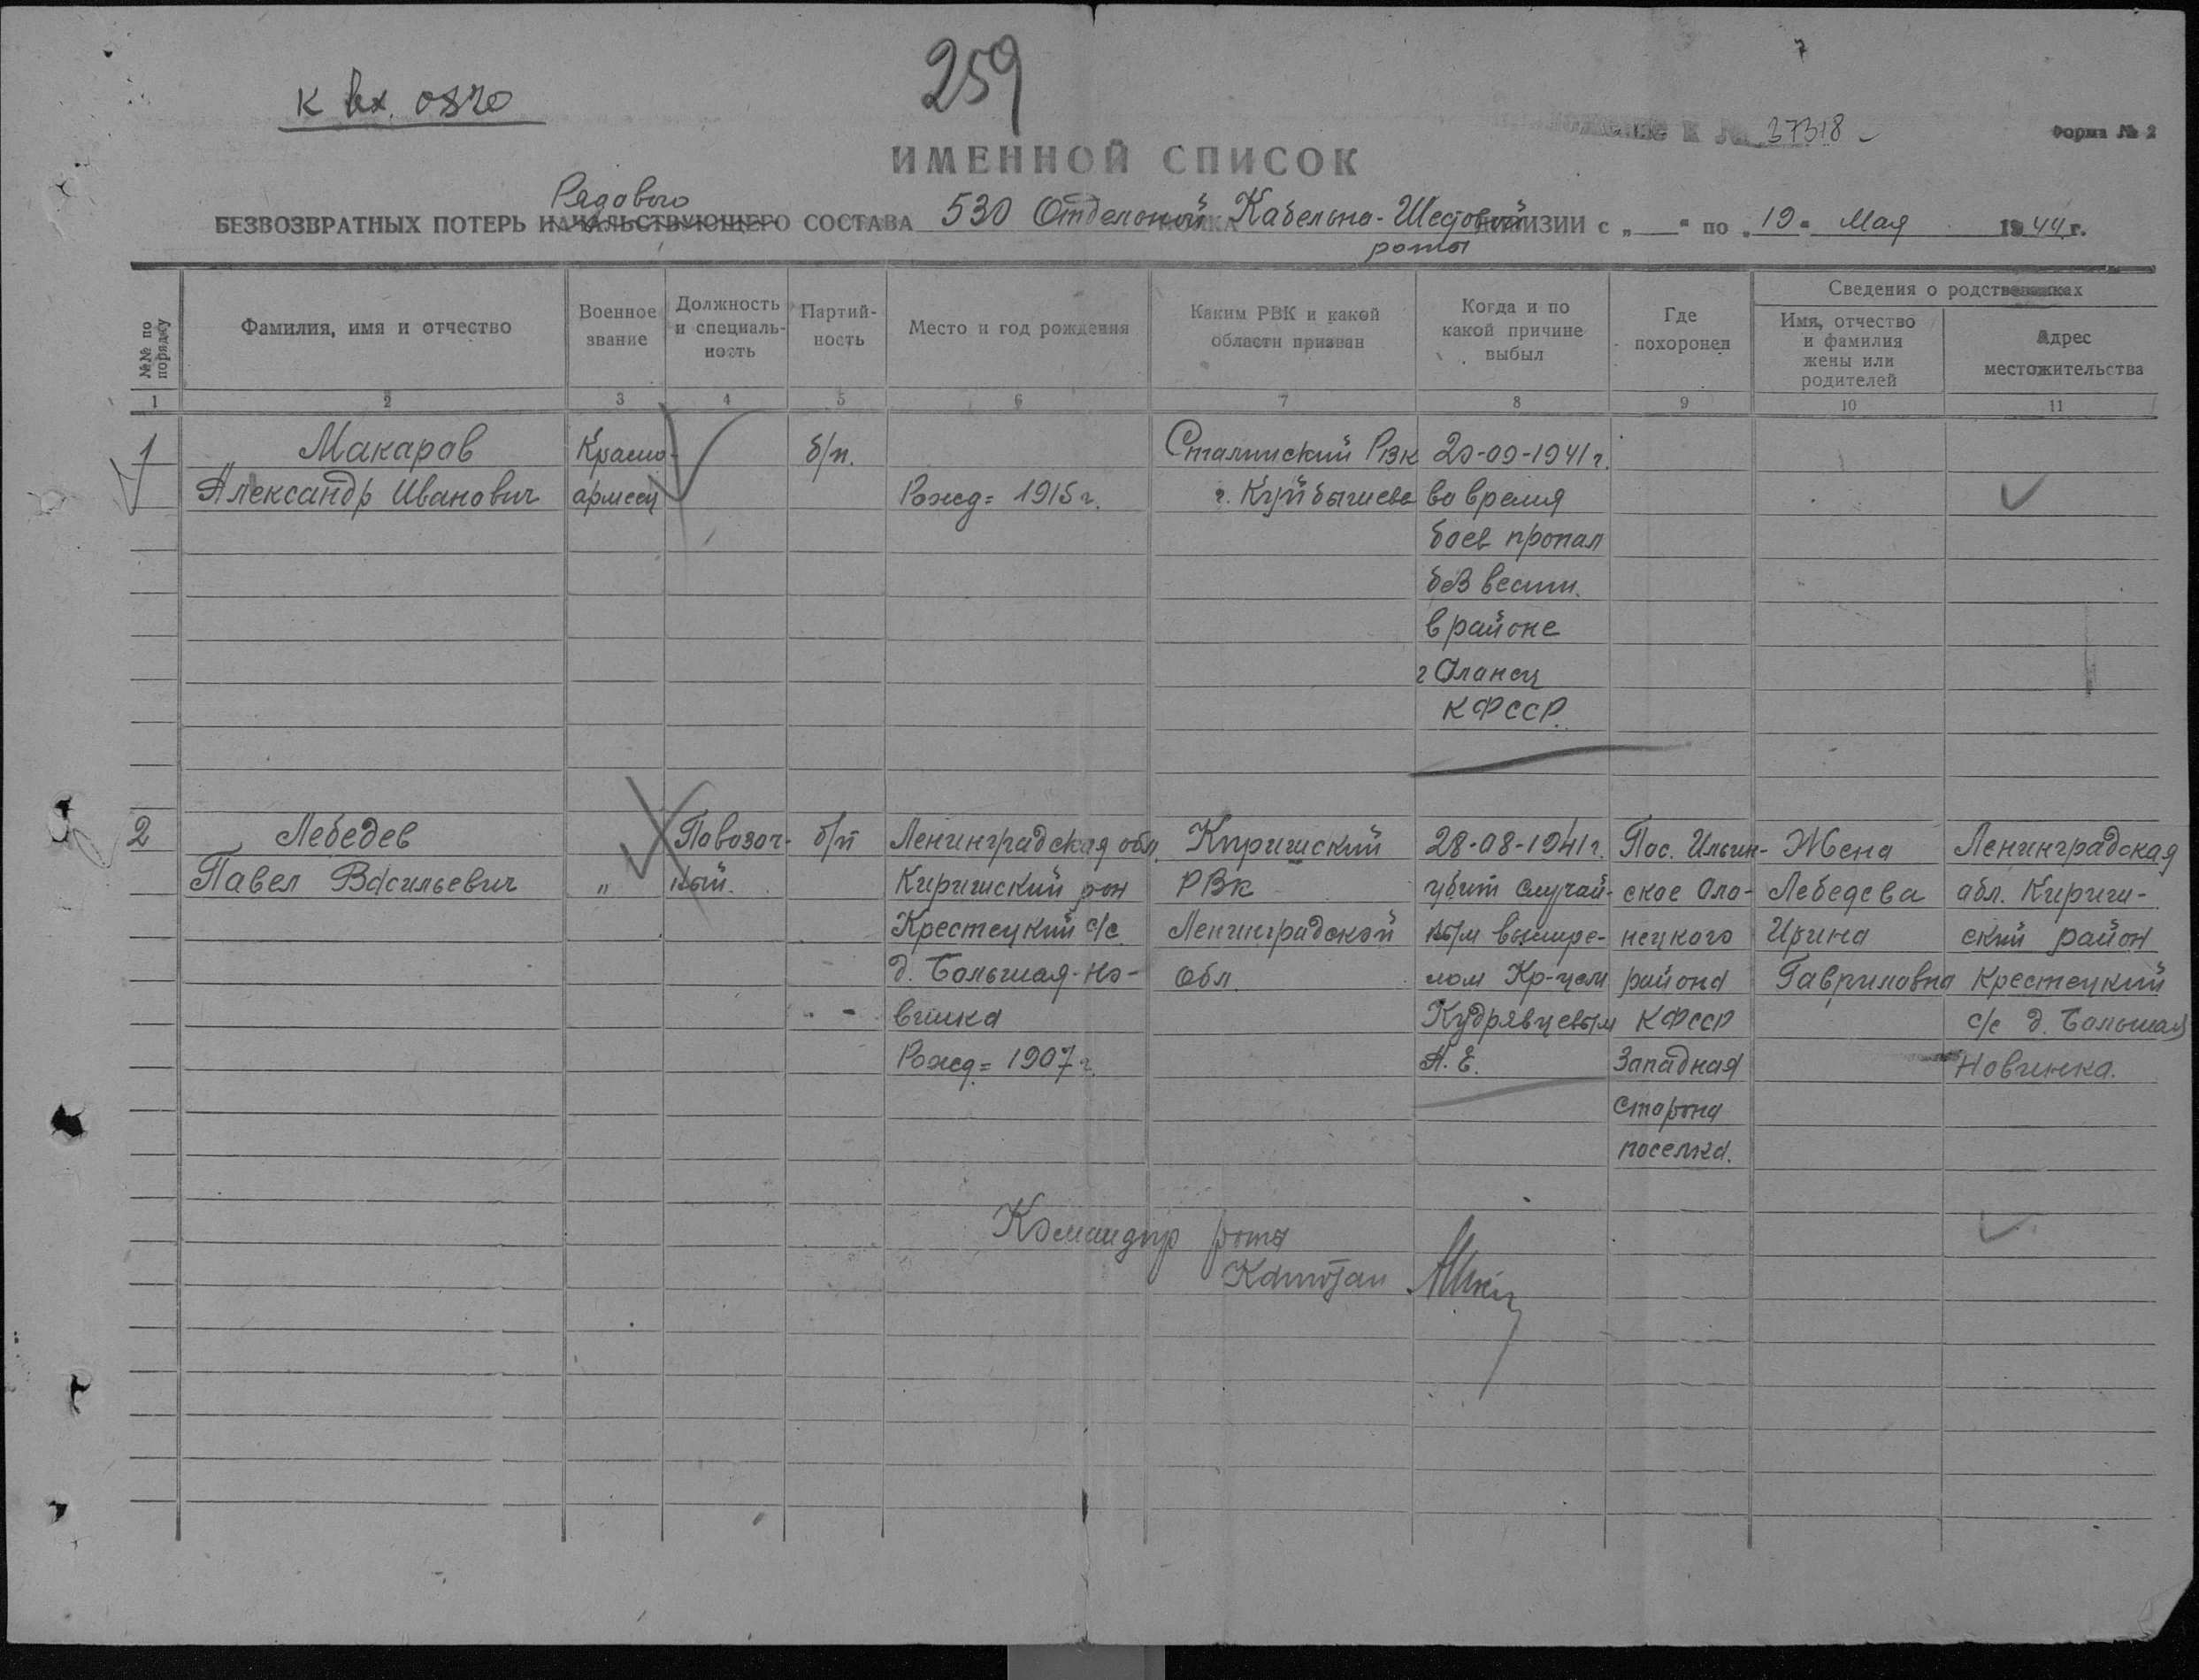 7
259
к вх. 0820
к № 37318
Форма № 2
ИМЕННОЙ СПИСОК
Рядового
БЕЗВОЗВРАТНЫХ ПОТЕРЬ НАЧАЛЬСТВУЮЩЕГО СОСТАВА 530 Отдельной Кабельно-Шестовой ДИВИЗИИ с „ “ по „19“ Мая 1944 г.
роты
№№ по порядку
Фамилия, имя и отчество
Военное звание
Должность и специаль-ность
Партий-ность
Место и год рождения
Каким РВК и какой области призван
Когда и по какой причине выбыл
Где похоронен
Сведения о родственниках
Имя, отчество и фамилия жены или родителей
Адрес местожительства
1 2 3 4 5 6 7 8 9 10 11
1 Макаров Красно- б/п. Сталинский РВК 20-09-1941 г.
Александр Иванович армеец Рожд= 1915 г. г. Куйбышева во время
боев пропал
без вести.
в районе
г Оланец
КФССР.
2 Лебедев Повозоч- б/п Ленинградская обл. Киришский 28-08-1941 г. Пос. Ильин- Жена Ленинградская
Павел Васильевич „ ный. Киришский рон РВК убит случай- ское Оло- Лебедева обл. Кириш-
Крестецкий с/с Ленинградской ным выстре- нецкого Ирина ский район
д. Большая-Но- Обл. лом Кр-цем района Гавриловна Крестецкий
винка Кудрявцевым КФССР с/с д. Большая
Рожд= 1907 г. А. Е. Западная Новинка.
сторона
поселка.
Командир роты
Капитан